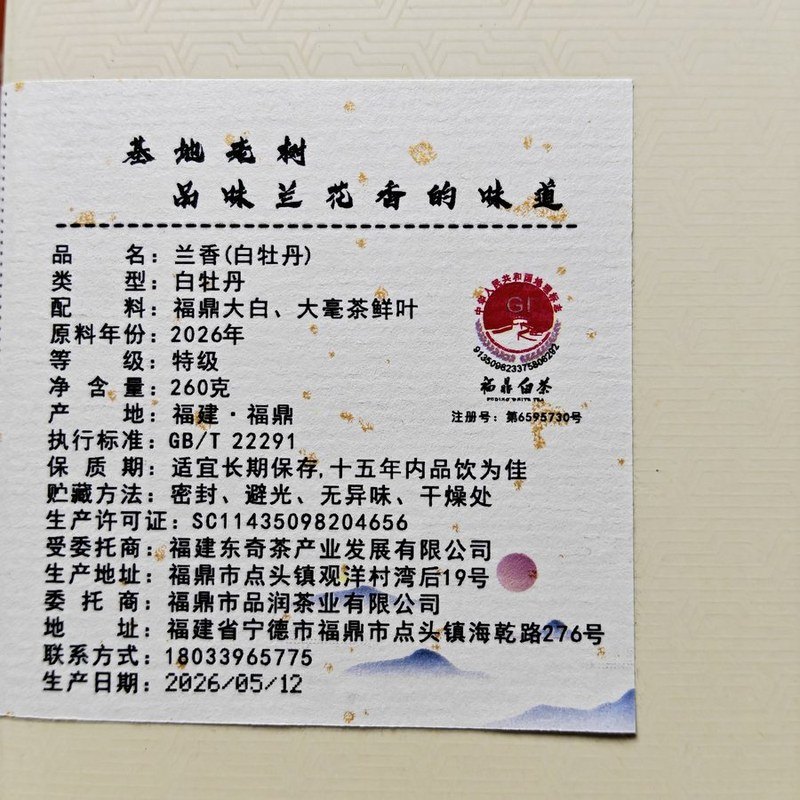 基地荒树
品味兰花香的味道
品 名：兰香(白牡丹)
类 型：白牡丹
配 料：福鼎大白、大毫茶鲜叶
原料年份：2026年
等 级：特级
净 含 量：260克
产 地：福建·福鼎
执行标准：GB/T 22291
保 质 期：适宜长期保存,十五年内品饮为佳
贮藏方法：密封、避光、无异味、干燥处
生产许可证：SC11435098204656
受委托商：福建东奇茶产业发展有限公司
生产地址：福鼎市点头镇观洋村湾后19号
委 托 商：福鼎市品润茶业有限公司
地 址：福建省宁德市福鼎市点头镇海乾路276号
联系方式：18033965775
生产日期：2026/05/12
中华人民共和国地理标志
GI
913509823375806202
福鼎白茶
FUDING WHITE TEA
注册号：第6595730号